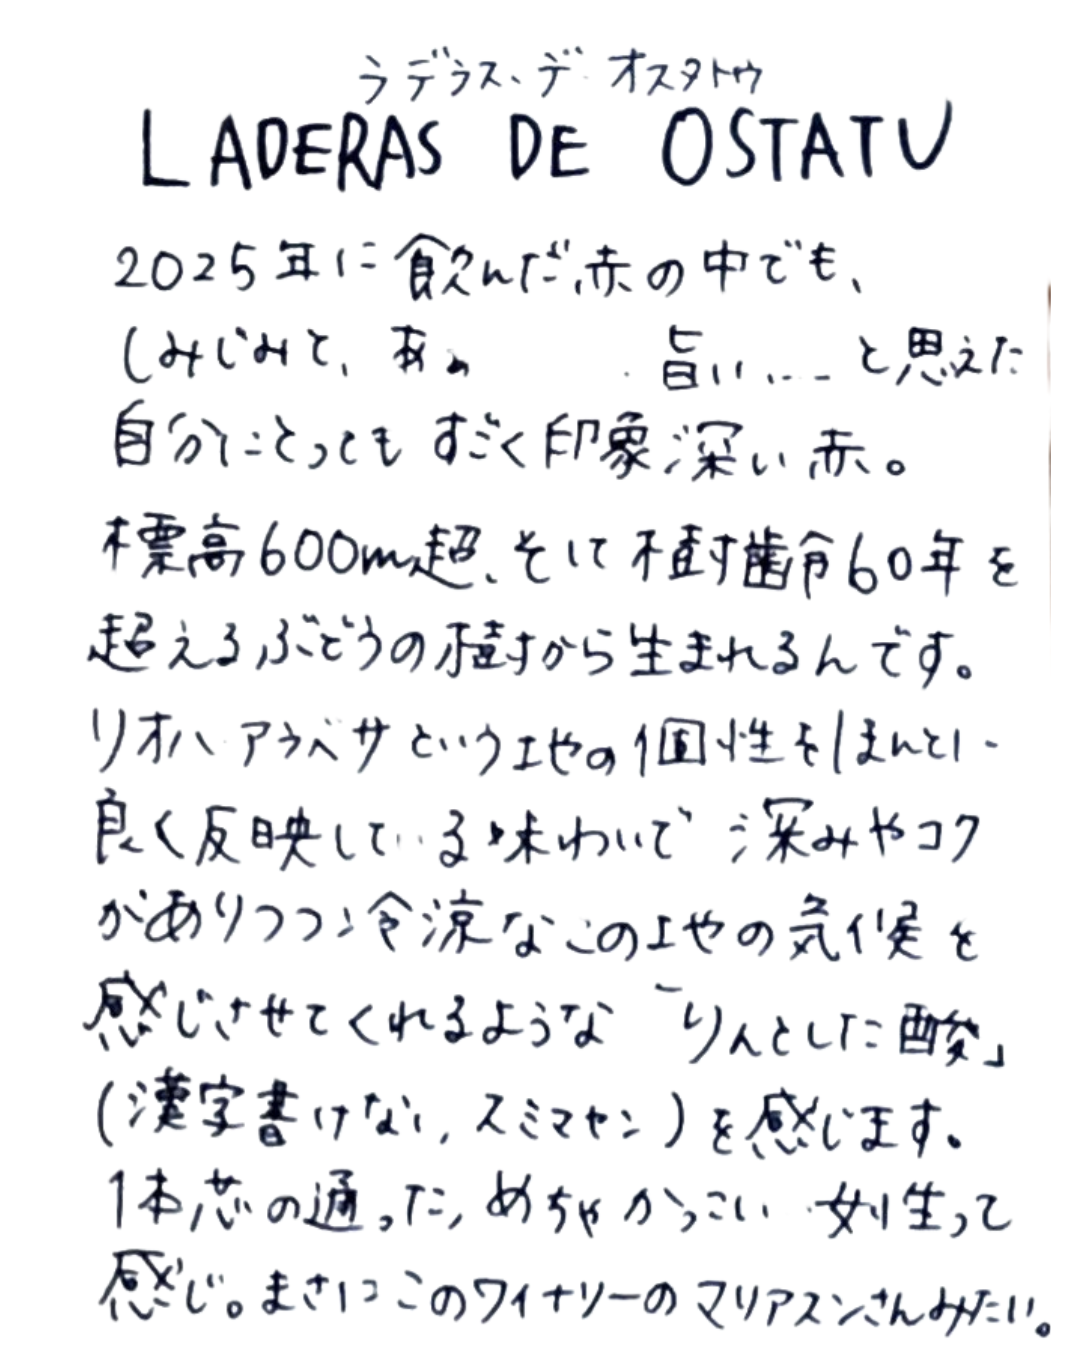 ラデラス、デ オスタトウ
LADERAS DE OSTATU
2025年に飲んだ赤の中でも、
しみじみと、あぁ 旨い…と思えた
自分にとっても すごく印象深い赤。
標高600m超、そして樹齢60年を
超えるぶどうの樹から生まれるんです。
リオハ アラベサという土地の個性をほんとに
良く反映している味わいで 深みやコク
がありつつ冷涼なこの土地の気候を
感じさせてくれるような「りんとした酸」
(漢字書けない、スミマセン)を感じます。
1本芯の通った、めちゃかっこい 女性って
感じ。まさにこのワイナリーのマリアスンさんみたい。